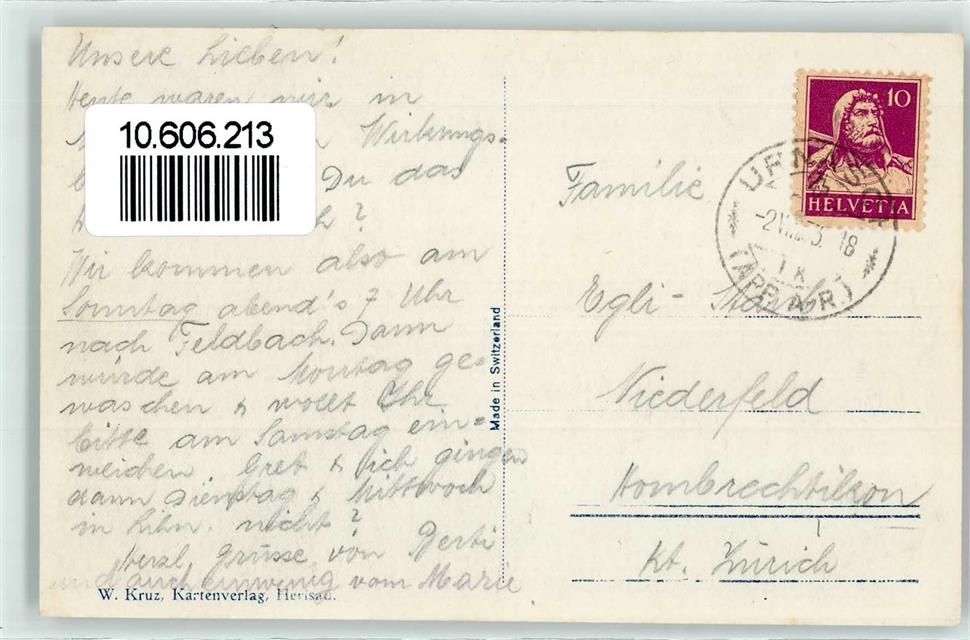 Unsere Lieben!
Heute waren wir in
Wirkungs-
Du das
?
Wir kommen also am
Sonntag abend's 7 Uhr
nach Feldbach. Dann
würde am Montag ge-
waschen & wollt Ihr
bitte am Samstag ein=
weichen. & ich gingen
dann Dienstag & Mittwoch
in nicht?
Herzl. Grüsse von Berti
und auch einwenig vom Marie
W. Kruz, Kartenverlag, Herisau.
10.606.213
Made in Switzerland
10
HELVETIA
(APP. A. R.)
Familie
Egli-
Niederfeld
Hombrechtikon
Kt. Zürich